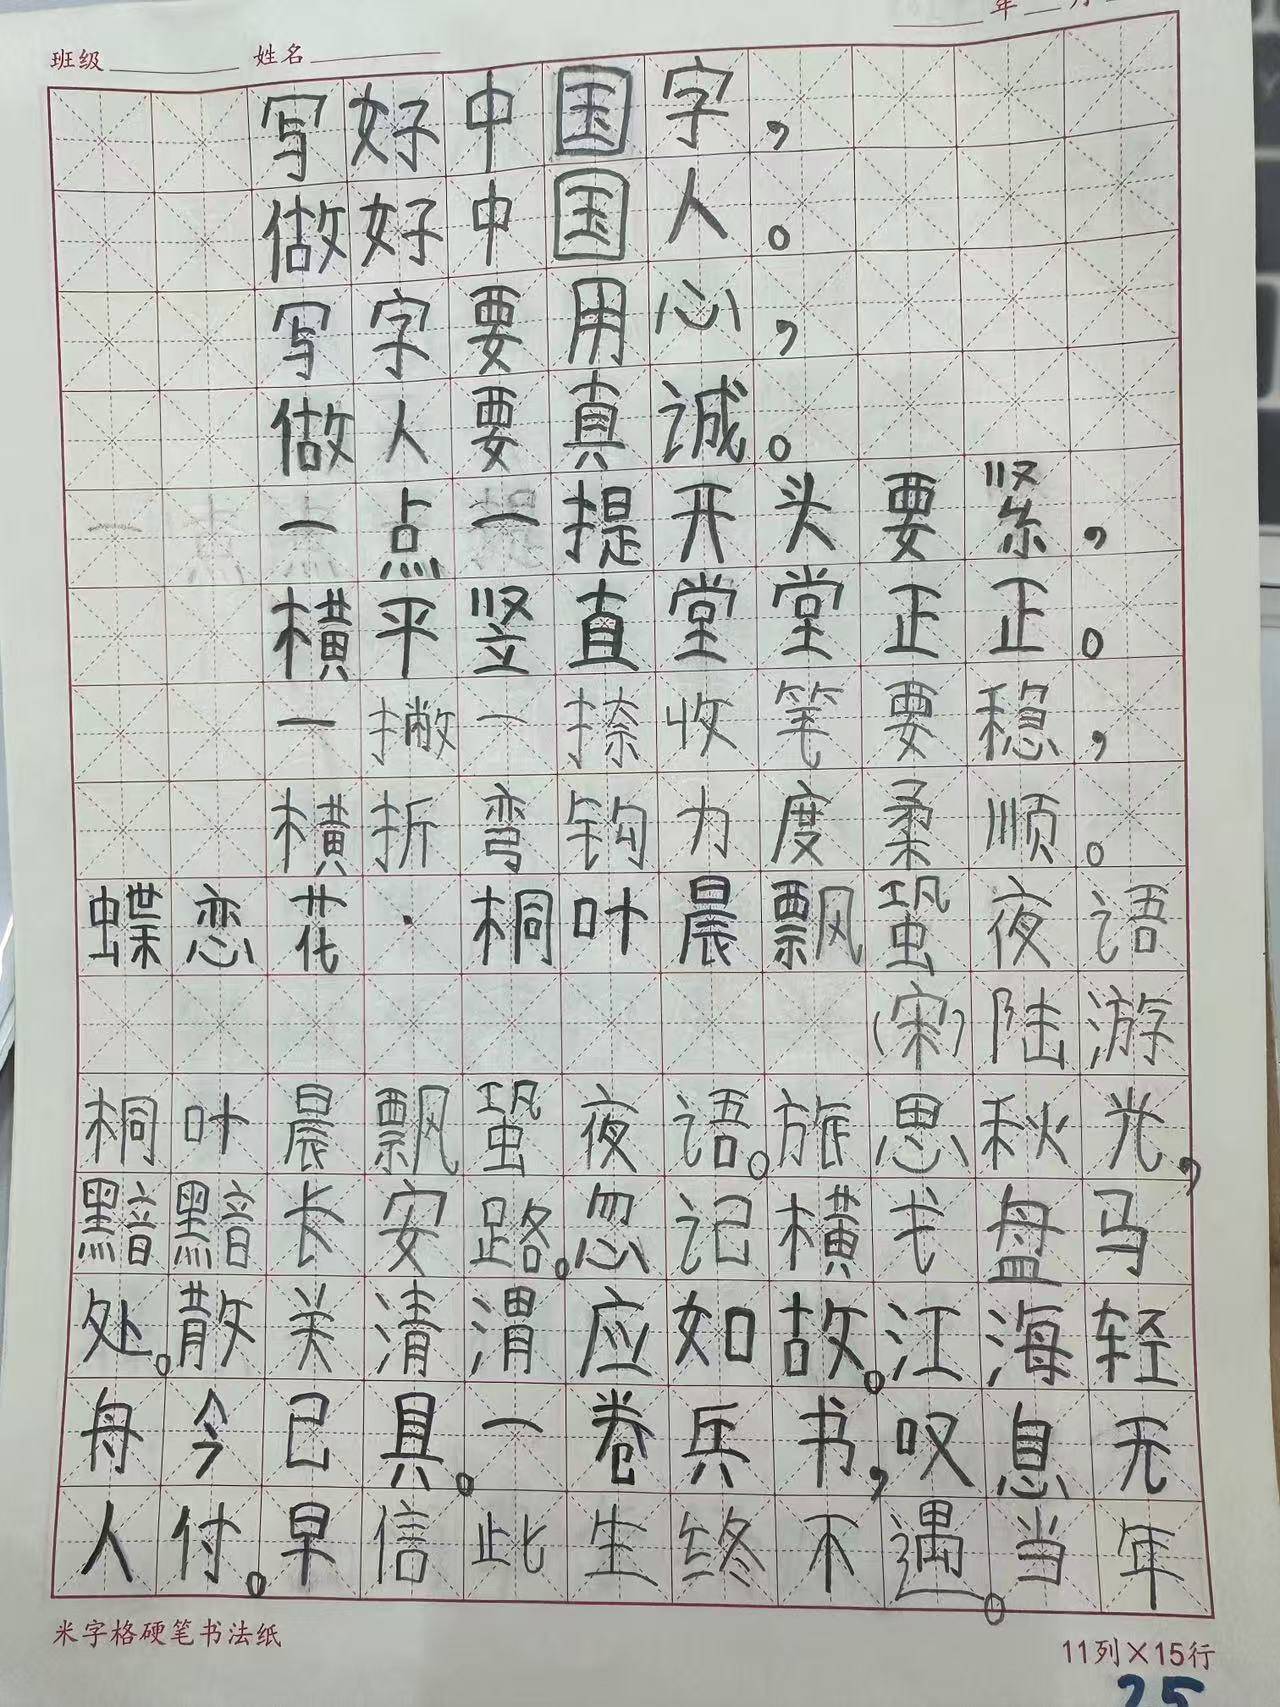 年 月
班级 姓名
写好中国字，
做好中国人。
写字要用心，
做人要真诚。
一点一提开头要紧，
横平竖直堂堂正正。
一撇一捺收笔要稳，
横折弯钩力度柔顺。
蝶恋花·桐叶晨飘蛩夜语
（宋）陆游
桐叶晨飘蛩夜语。旅思秋光，
黑暗黑暗长安路。忽记横戈盘马
处。散关清渭应如故。江海轻
舟今已具。一卷兵书，叹息无
人付。早信此生终不遇。当年
米字格硬笔书法纸
11列×15行
25